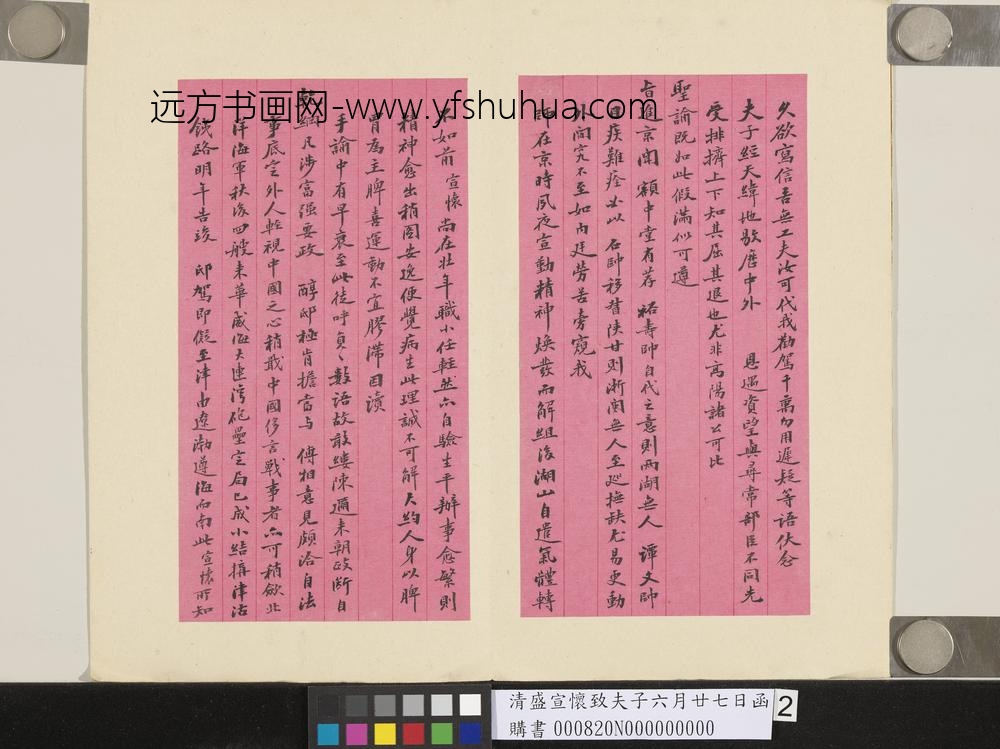 久欲寫信吾無工夫汝可代我勸駕千萬勿用遲疑等語伏念
夫子經天緯地敭歷中外 恩遇資望與尋常部臣不同先
受排擠上下知其屈其退也尤非高陽諸公可比
聖諭既如此假滿似可遵
旨進京聞額中堂有荐 裕壽帥自代之意則兩湖無人 譚文帥
目疾難痊必以 石帥移督陝甘則浙閩無人至巡撫缺尤易更動
外間窮不至如內廷勞苦旁窺我
師在京時夙夜宣勤精神煥發而解組後湖山自遣氣體轉
不如前 宣懷 尚在壯年職小任輕然亦自驗生平辦事愈繁則
精神愈出稍圖安逸便覺病生此理誠不可解大約人身以脾
胃為主脾喜運動不宜膠滯因讀
手諭中有早衰至此徒呼負負數語故敢縷陳邇來朝政斷自
乾綱凡涉富強要政 醇邸極肯擔當與 傅相意見頗洽自法
事底定外人輕視中國之心稍戢中國侈言戰事者亦可稍斂北
洋海軍秋後四艘來華威海大連灣砲壘定局已成小結搆津沽
鐵路明年告竣 邸駕即儗至津由遼瀚遵海而南此宣懷所知
远方书画网-www.yfshuhua.com
清盛宣懷致夫子六月廿七日函
購書 000820N000000000
2